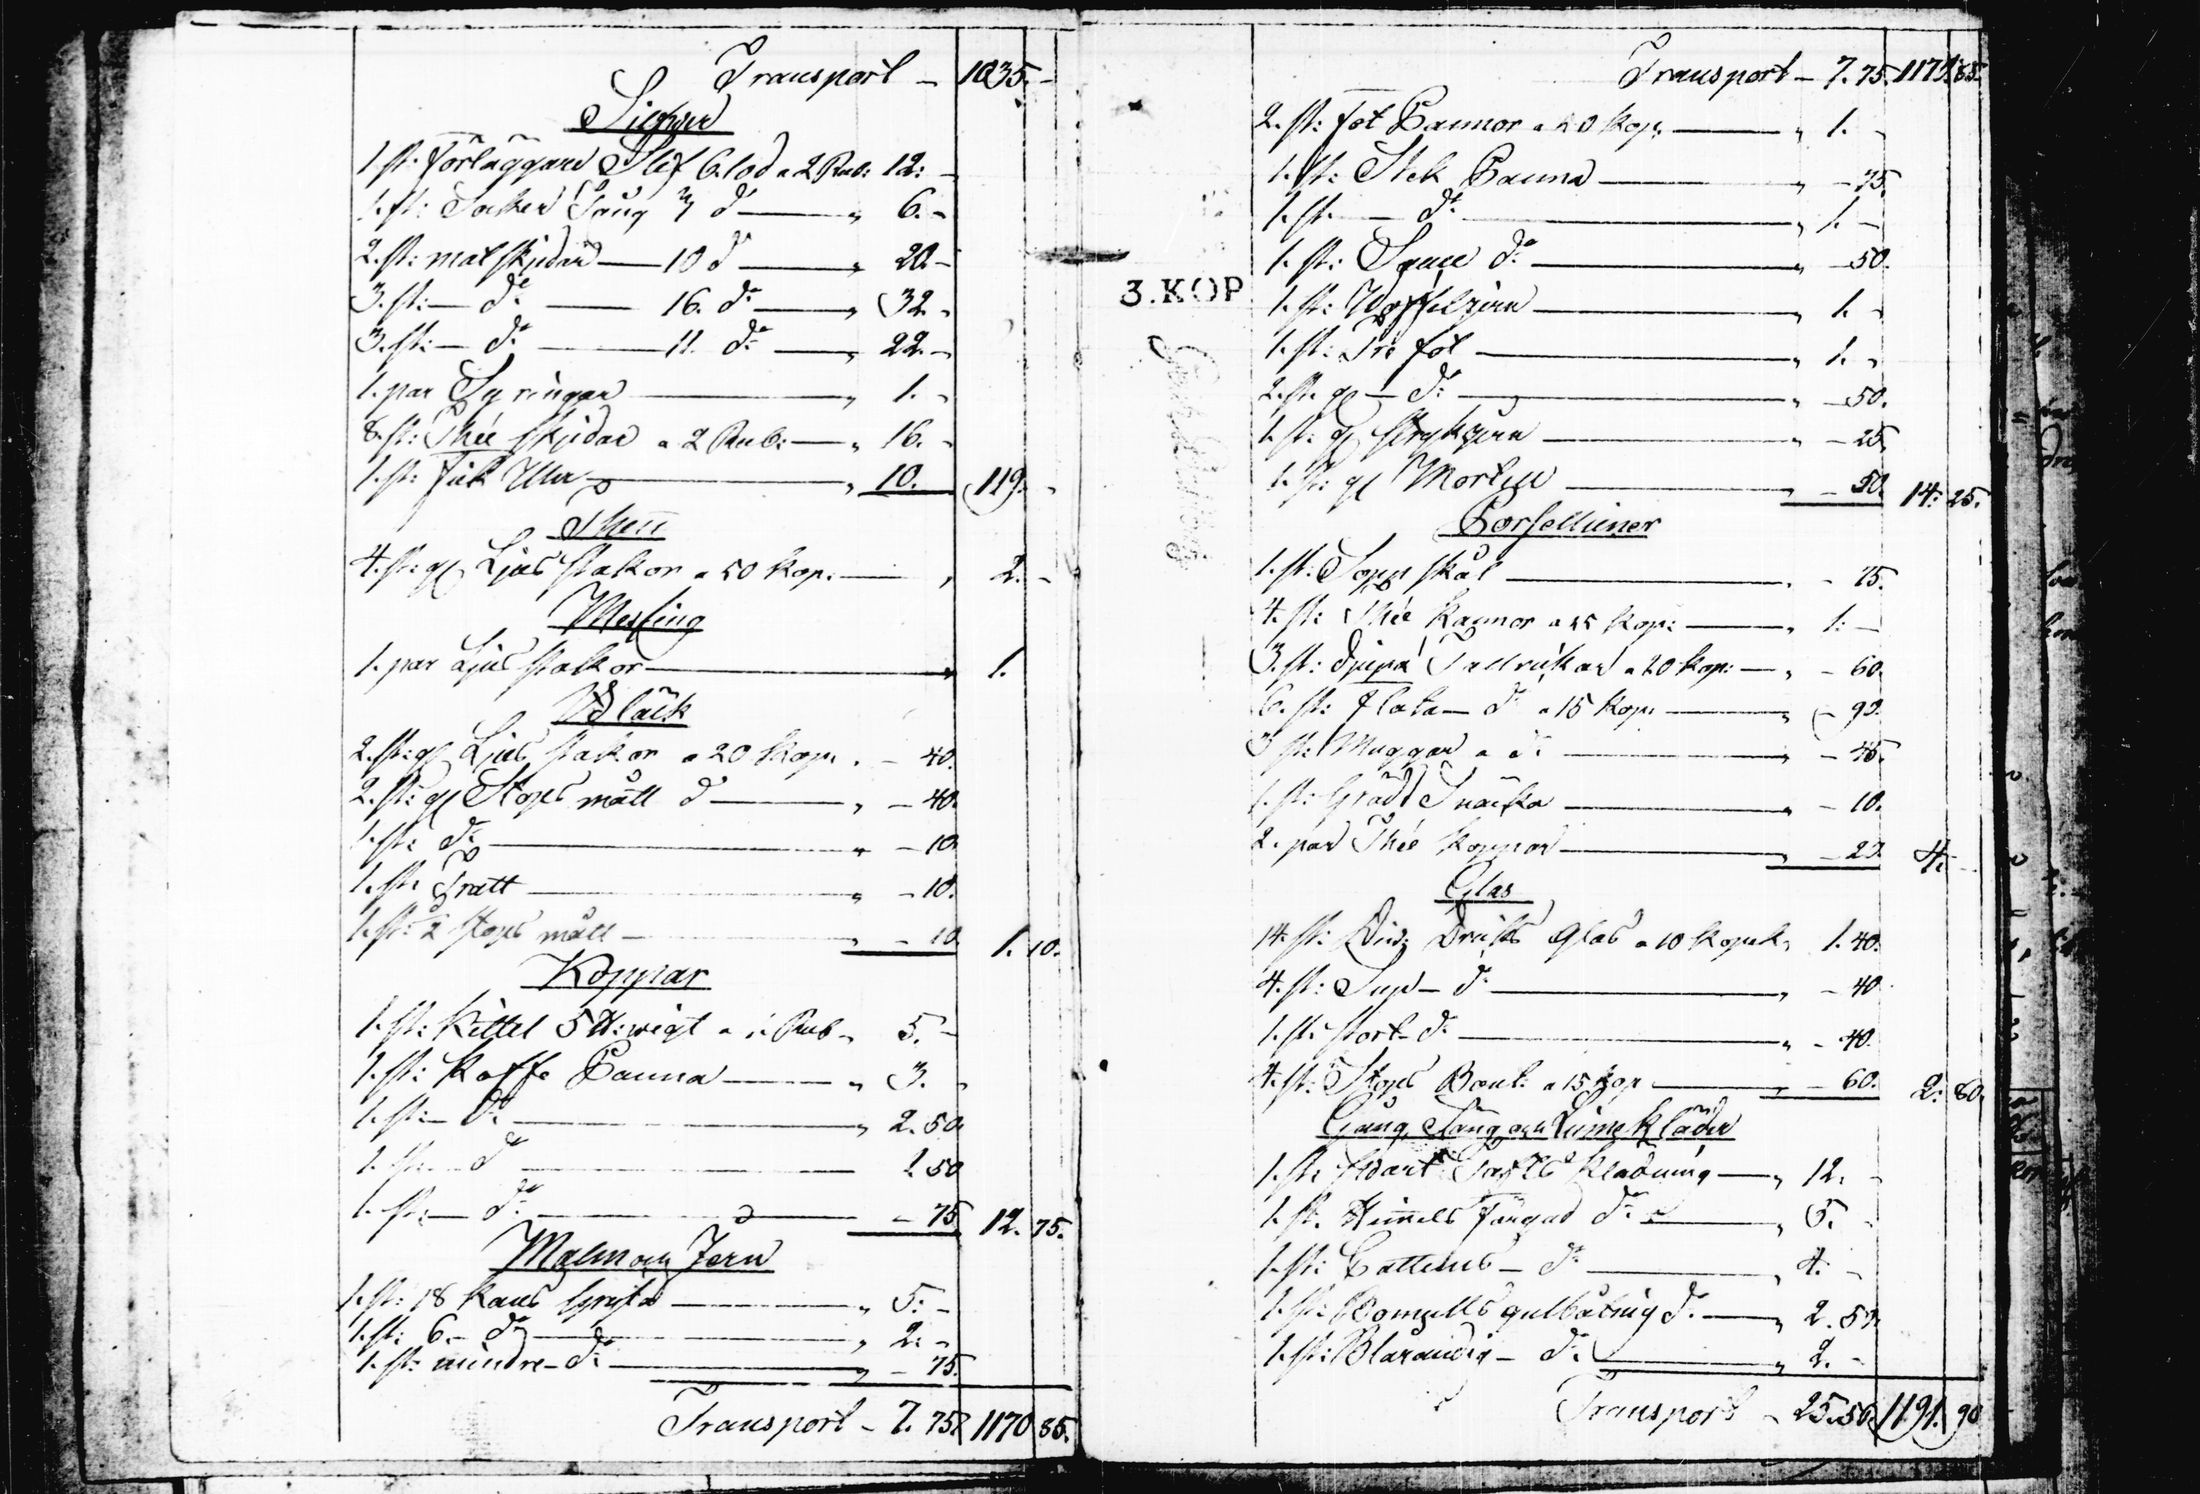 Transport – 1035. –
Silfwer
1. st: Förläggare Slef 6. lod a 2 Rub: 12: –
1. st: Socker Tång 3 do „ 6. –
2. st: mat skjedar 10 do „ 20. –
3. st: – do 16. do „ 32 –
3. st: – do 11. do „ 22. –
1. par Syringar „ 1. –
8. st: Thée skjedar a 2 Rub: „ 16. –
1. st: fick Uhr „ 10. 119. –
Thenn
4. st: gl Ljus stakor a 50 Kop: „ 2. –
Messing
1. par Ljus stakor „ 1.
Bläck
2. st: gl Ljus stakor a 20 Kop: – 40.
2. st: gl Stops mått do „ – 40.
1. st: do „ – 10.
1. st: Tratt „ – 10.
1. st: ½ Stops mått „ – 10. 1. 10.
Koppar
1. st: Kittel 5 ℔: wigt a 1. Rub „ 5. –
1. st: Kaffe Panna „ 3. –
1. st: – do „ 2. 50.
1. st: – do 1. 50
1. st: – do – 75. 12. 75.
Malm och Jern
1. st: 18 Kans Gryta „ 5: –
1. st: 6. – do „ 2: –
1. st: mindre – do „ – 75.
Transport – 7. 75. 1170 85.
Transport – 7. 75. 1170. 85.
2. st: fot Pannor a 50 Kop: „ 1. –
1. st: Stek Panna „ – 75.
1. st. – do „ 1. –
1. st: do „ – 50.
3. KOP
1. st: Woffeljern „ 1. –
1. st: Tre fot „ 1. –
2. st. gl – do „ – 50.
1. st: gl Strykjern – – 25.
1. st: gl Mortell – 50. 14: 25.
Porselliner
1. st: Sopp skål „ – 75.
4. st: Thée Kannor a 25 Kop: „ 1: –
3. st: djupa Tallrickar a 20 Kop: „ – 60.
6. st: flata – do a 15 Kop: „ – 90.
3 st: Muggar a do „ – 45.
1. st: Grädd Snäcka „ – 10.
2. par Thée Koppar „ – 20. 4. –
Glas
14. st: Dricks Glas a 10 Kopek „ 1. 40.
4. st: Sup – do „ – 40.
1. st: stort do „ – 40.
4. st: Stops Bout: a 15 Kop „ – 60. 2: 80.
Gång, Säng och Linne Kläder
1. st: swart Klädning „ 12. –
1. st. Himmels färgad do „ 5. –
1. st: Cattuns – do „ 4. –
1. st: Bomulls do „ 2. 50.
1. st: Blårandig – do „ 2. –
Transport – 25. 50. 1191. 90